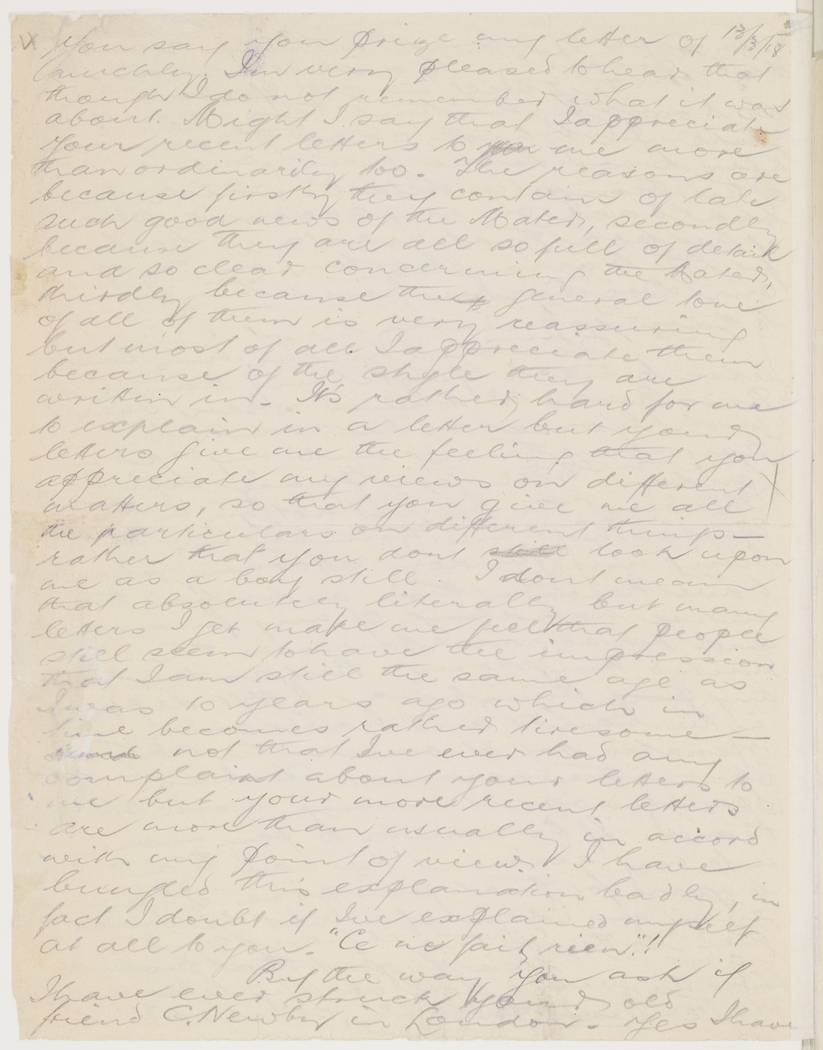 You say you prize my letter of 13/3/18
muchly. I'm very pleased to hear that
though I do not remember what it was
about. Might I say that I appreciate
your recent letters to me more
than ordinarily too. The reasons are
because firstly they contain of late
such good news of the Mater, secondly
because they are all so full of detail
and so clear concerning the Mater,
thirdly because the general tone
of all of them is very reassuring
but most of all I appreciate them
because of the style they are
written in. It's rather hard for me
to explain in a letter but your
letters give me the feeling that you
appreciate my views on different
matters, so that you give me all
the particulars on different things —
rather that you dont still look upon
me as a boy still. I dont mean
that absolutely literally but many
letters I get make me feel that people
still seem to have the impression
that I am still the same age as
I was 10 years ago which in
time becomes rather tiresome —
not that I've ever had any
complaint about your letters to
me but your more recent letters
are more than usually in accord
with my point of view. I have
bungled this explanation badly, in
fact I doubt if I've explained myself
at all to you. "Ce ne fait rien"!!
By the way you ask if
I have ever struck your old
friend C. Newby in London. Yes I have